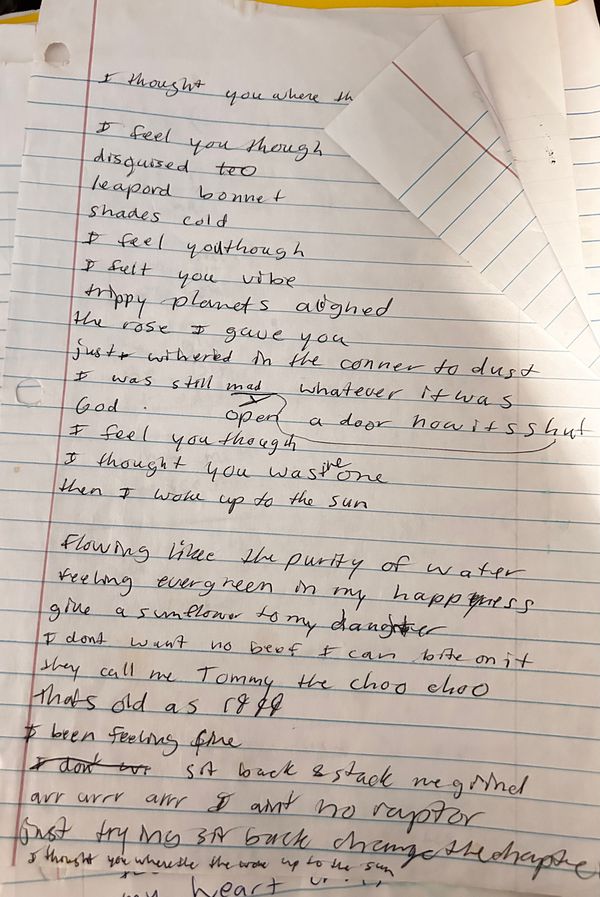 I thought you where th
I feel you though
disguised too
leapord bonnet
shades cold
I feel you though
I fult you vibe
trippy planets alighed
the rose I gave you
just withered in the conner to dust
I was still mad whatever it was
God. open a door now its shut
I feel you though
I thought you was the one
then I woke up to the sun
flowing like the purity of water
feeling evergreen in my happyness
give a sunflower to my daughter
I dont want no beef I can bite on it
they call me Tommy the choo choo
thats old as
I been feeling fine
I don't sit back & stack me grind
arr arrr arrr I aint no raptor
just trying sit back change the chapte
I thought you where the the woke up to the sun
my heart